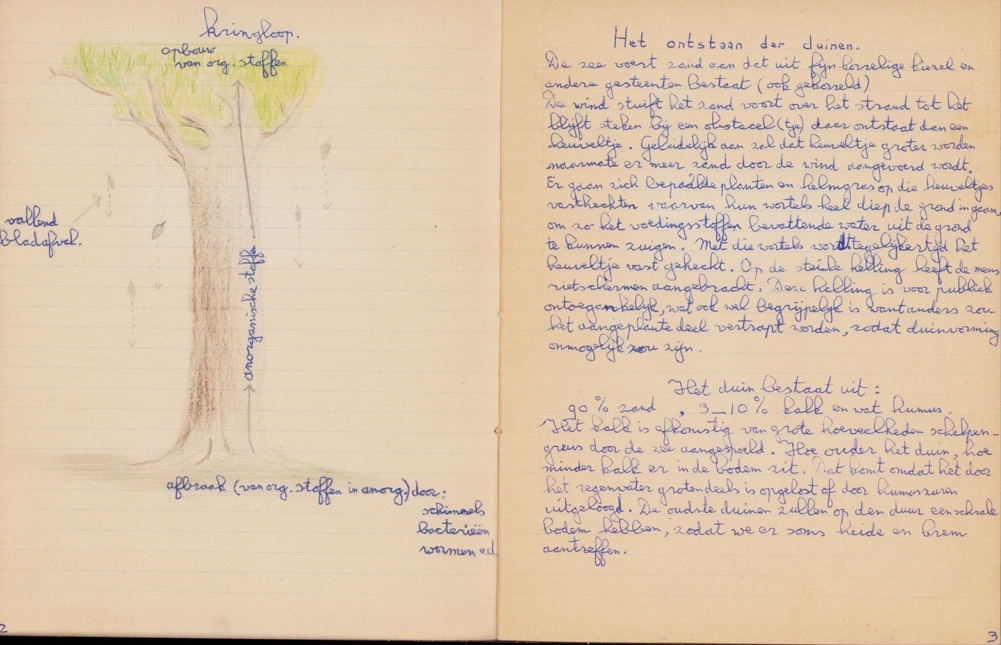 kringloop.
opbouw
van org. stoffen
vallend
bladafval.
anorganische stoffen
afbraak (van org. stoffen in anorg.) door:
schimmels
bacterieën
wormen e.d.
2
Het ontstaan der duinen.
De zee voert zand aan dat uit fijn korrelige kiezel en
andere gesteenten bestaat (ook gekorreld)
De wind stuift het zand voort over het strand tot het
blijft steken bij een obstacel(tje) daar ontstaat dan een
heuveltje. Geleidelijk aan zal dat heuveltje groter worden
naarmate er meer zand door de wind aangevoerd wordt.
Er gaan zich bepaalde planten en helmgras op die heuveltjes
vasthechten waarvan hun wortels heel diep de grond in gaan
om zo het voedingsstoffen bevattende water uit de grond
te kunnen zuigen. Met die wortels wordt tegelijkertijd het
heuveltje vast gehecht. Op de steile helling heeft de mens
rietschermen aangebracht. Deze helling is voor publiek
ontoegankelijk, wat ook wel begrijpelijk is want anders zou
het aangeplante deel vertrapt worden, zodat duinvorming
onmogelijk zou zijn.
Het duin bestaat uit:
90 % zand , 3_10 % kalk en wat humus.
Het kalk is afkomstig van grote hoeveelheden schelpen-
gruis door de zee aangespoeld. Hoe ouder het duin, hoe
minder kalk er in de bodem zit. Dat komt omdat het door
het regenwater grotendeels is opgelost of door humuszuren
uitgeloogd. De oudste duinen zullen op den duur een schrale
bodem hebben, zodat we er soms heide en brem
aantreffen.
3